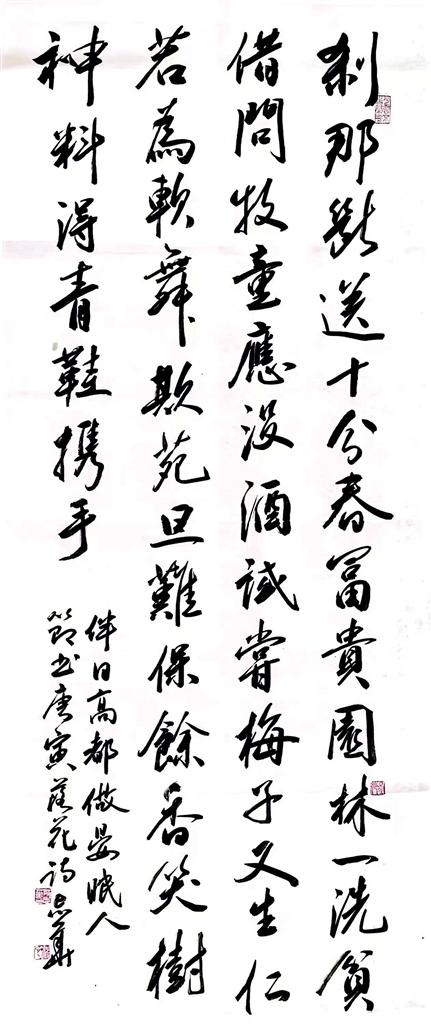 刹那斷送十分春富貴園林一洗貧
借問牧童應沒酒試嘗梅子又生仁
若為軟舞欺花旦難保餘香笑樹
神料得青鞋攜手
伴日高都做晏眠人
節書唐寅落花詩